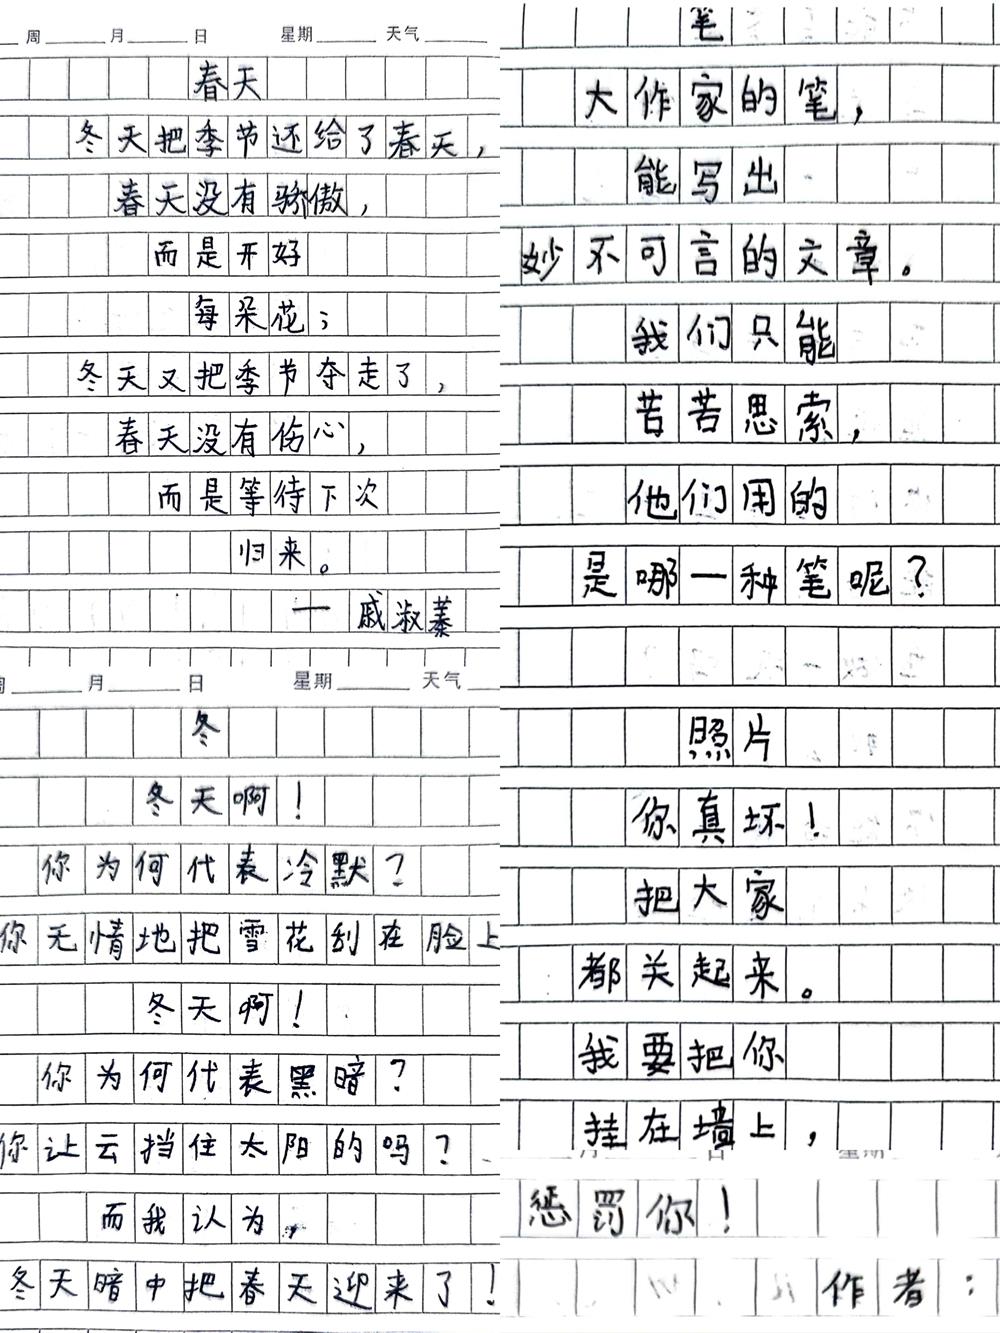 周 月 日 星期 天气
春天
冬天把季节还给了春天，
春天没有骄傲，
而是开好
每朵花；
冬天又把季节夺走了，
春天没有伤心，
而是等待下次
归来。
一戚淑蓁
周 月 日 星期 天气
冬
冬天啊！
你为何代表冷默？
你无情地把雪花刮在脸上
冬天啊！
你为何代表黑暗？
你让云挡住太阳的吗？
而我认为，
冬天暗中把春天迎来了！
笔
大作家的笔，
能写出
妙不可言的文章。
我们只能
苦苦思索，
他们用的
是哪一种笔呢？
照片
你真坏！
把大家
都关起来。
我要把你
挂在墙上，
月 日 星期
惩罚你！
作者：